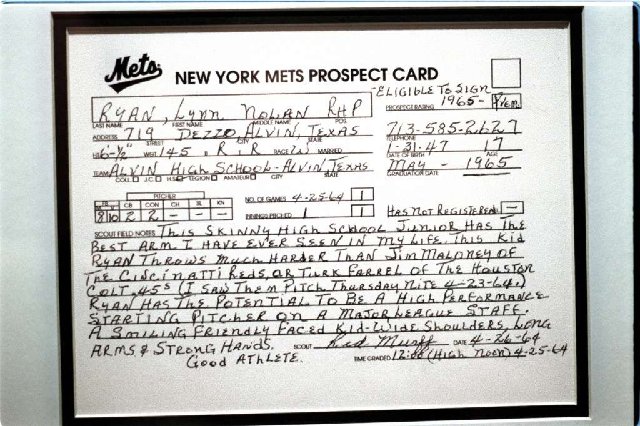 Mets
NEW YORK METS PROSPECT CARD
ELIGIBLE TO SIGN
RYAN, Lynn NOLAN RHP
PROSPECT RATING 1965-
LAST NAME FIRST NAME MIDDLE NAME POS.
ADDRESS 719 DEZZO ALVIN, TEXAS 713-585-2627
STREET CITY STATE TELEPHONE
6-½" WGT. 145 R R RACE W MARRIED 1-31-47 17
DATE OF BIRTH AGE
TEAM ALVIN HIGH SCHOOL-ALVIN TEXAS MAY - 1965
COLL. J.C. H.S. LEGION AMATEUR CITY STATE GRADUATION DATE
PITCHER
FB CB CON CH SL KN NO. OF GAMES 4-25-64 1
8/10 2 2 - - - INNINGS PITCHED 1 1 HAS NOT REGISTERED -
SCOUT FIELD NOTES THIS SKINNY HIGH SCHOOL JUNIOR HAS THE
BEST ARM I HAVE EVER SEEN IN MY LIFE. THIS KID
RYAN THROWS MUCH HARDER THAN JIM MALONEY OF
THE CINCINATTI REDS, OR TURK FARREL OF THE HOUSTON
COLT .45s (I SAW THEM PITCH THURSDAY NITE 4-23-64.)
RYAN HAS THE POTENTIAL TO BE A HIGH PERFORMANCE
STARTING PITCHER ON A MAJOR LEAGUE STAFF.
A SMILING FRIENDLY FACED KID-WIDE SHOULDERS, LONG
ARMS & STRONG HANDS. SCOUT Red Murff DATE 4-26-64
GOOD ATHLETE. TIME GRADED 12:00 (HIGH NOON) 4-25-64